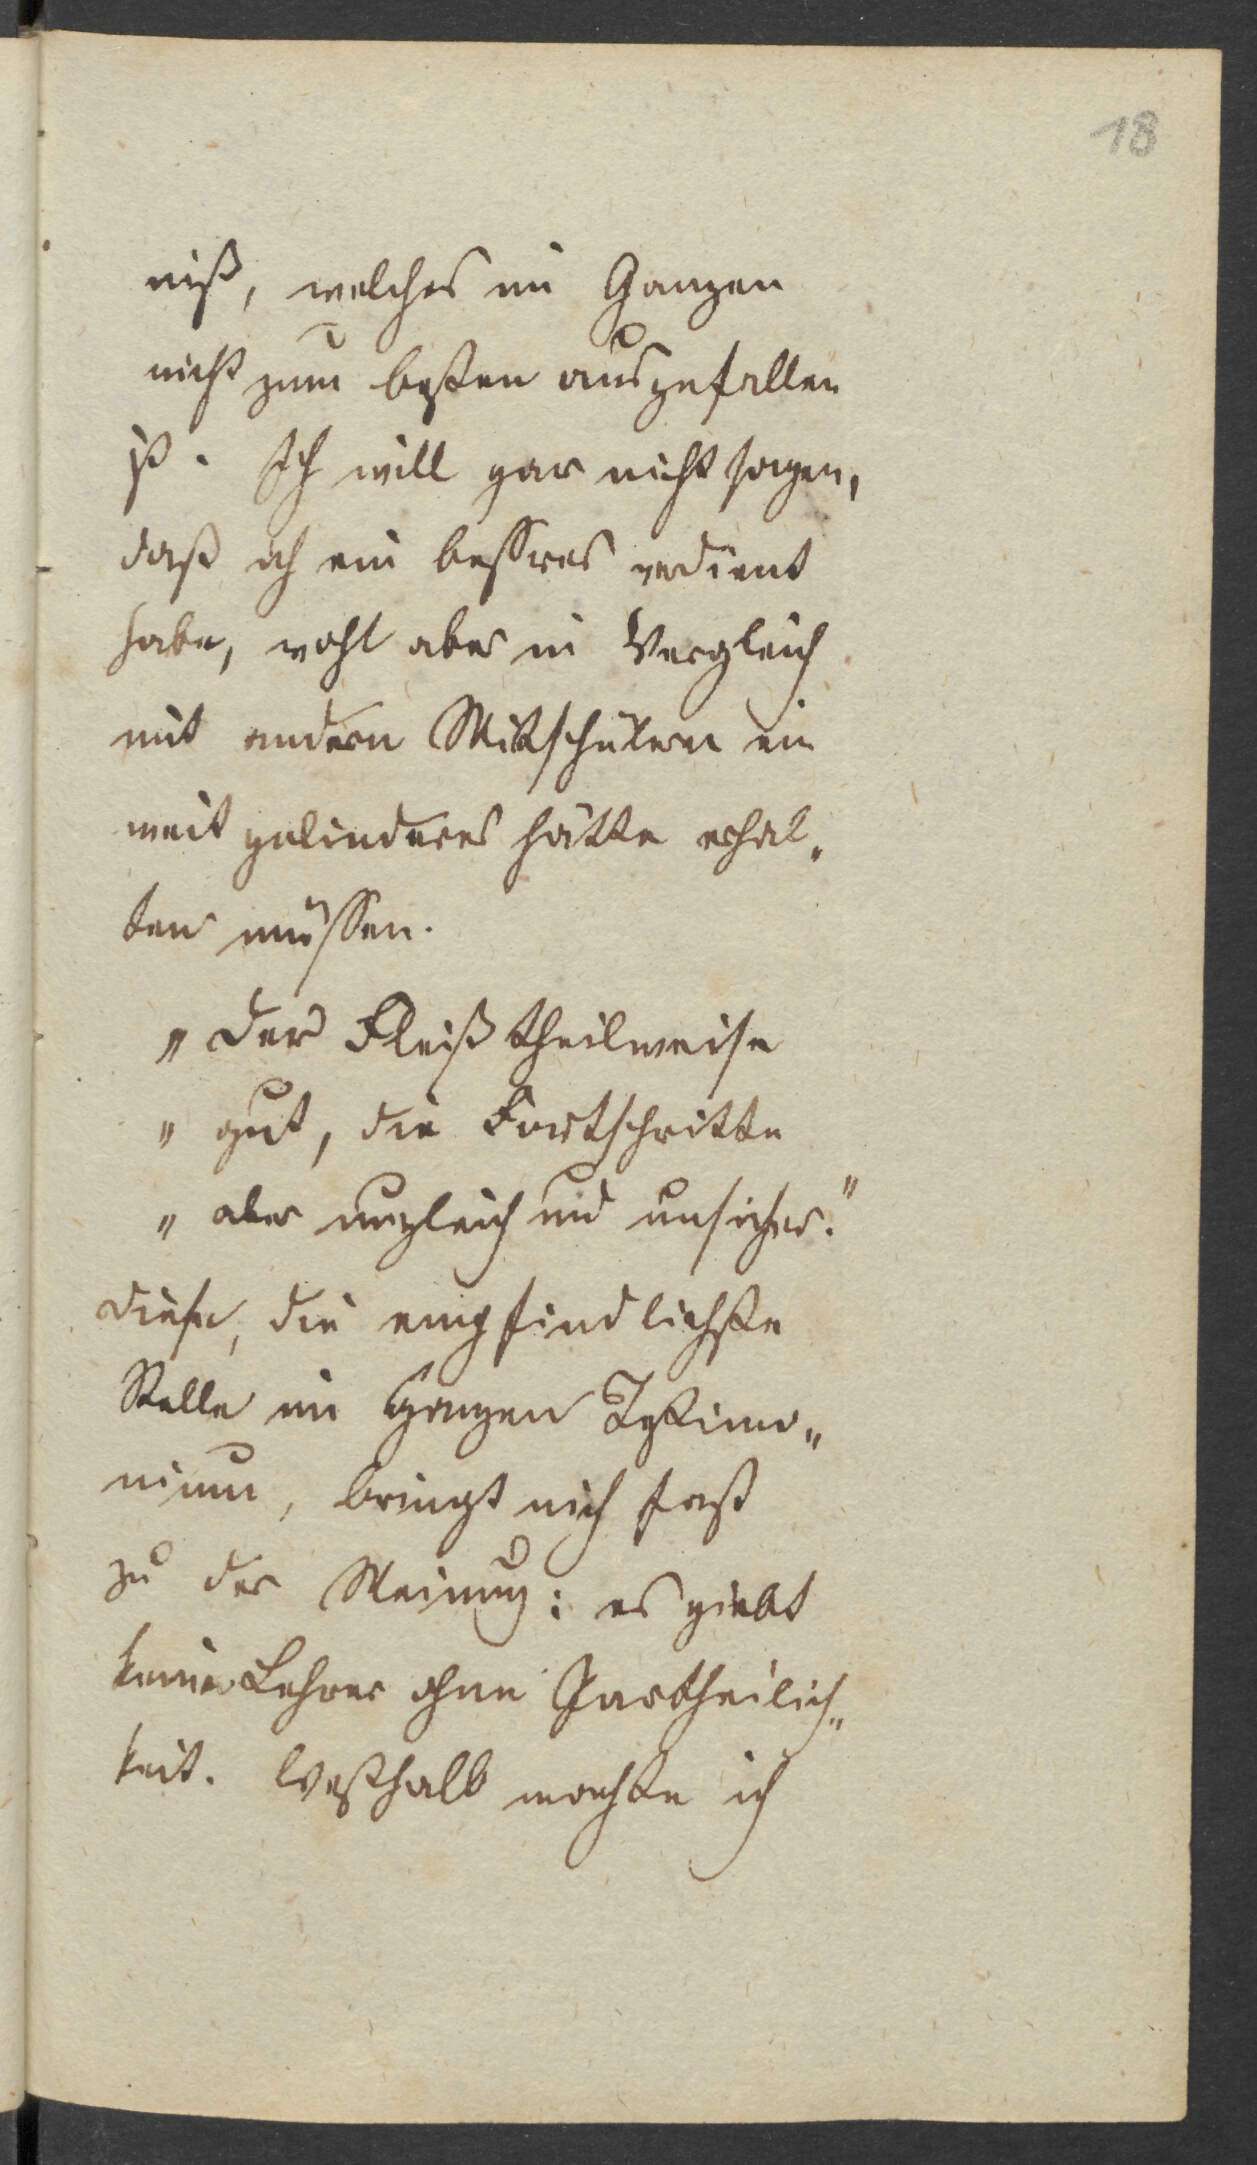 18
niß, welches im Ganzen
nicht zum besten ausgefallen
ist. Ich will gar nicht sagen,
daß ich ein bessres verdient
habe, wohl aber in Vergleich
mit andern Mitschülern ein
weit gelinderes hätte erhal„
ten müssen.
„ Der Fleiß theilweise
„ gut, die Fortschritte
„ aber ungleich und unsicher."
Diese, die empfindlichste
Stelle im Ganzen Testimo„
nium, bringt mich fast
zu der Meinung: es giebt
keine Lehrer ohne Partheilich„
keit. Weßhalb mochte ich